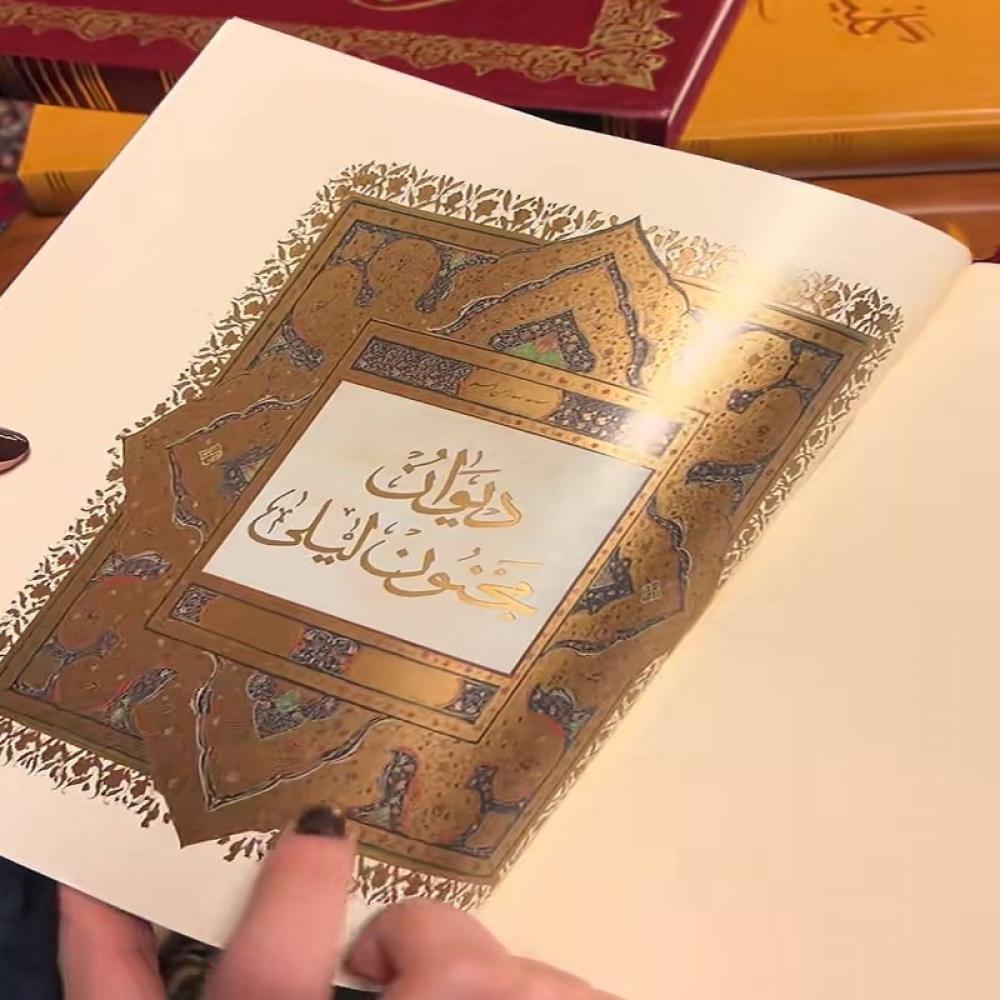 ديوان
مجنون ليلى